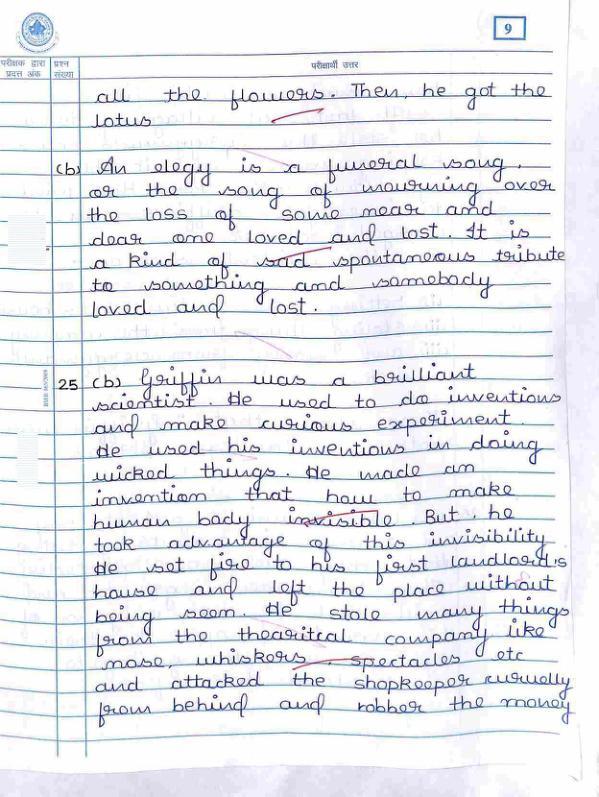 9
परीक्षक द्वारा प्रदत्त अंक
प्रश्न संख्या
परीक्षार्थी उत्तर
all the flowers. Then, he got the
lotus
(b) An elegy is a funeral song.
or the song of mourning over
the loss of some near and
dear one loved and lost. It is
a kind of sad spontaneous tribute
to something and somebody
loved and lost.
25 (b) Griffin was a brilliant
scientist. He used to do inventions
and make curious experiment.
He used his inventions in doing
wicked things. He made an
invention that how to make
human body invisible. But he
took advantage of this invisibility
He set fire to his first landlord's
house and left the place without
being seen. He stole many things
from the thearitcal company like
nose, whiskers, spectacles etc
and attacked the shopkeeper curuelly
from behind and robber the money